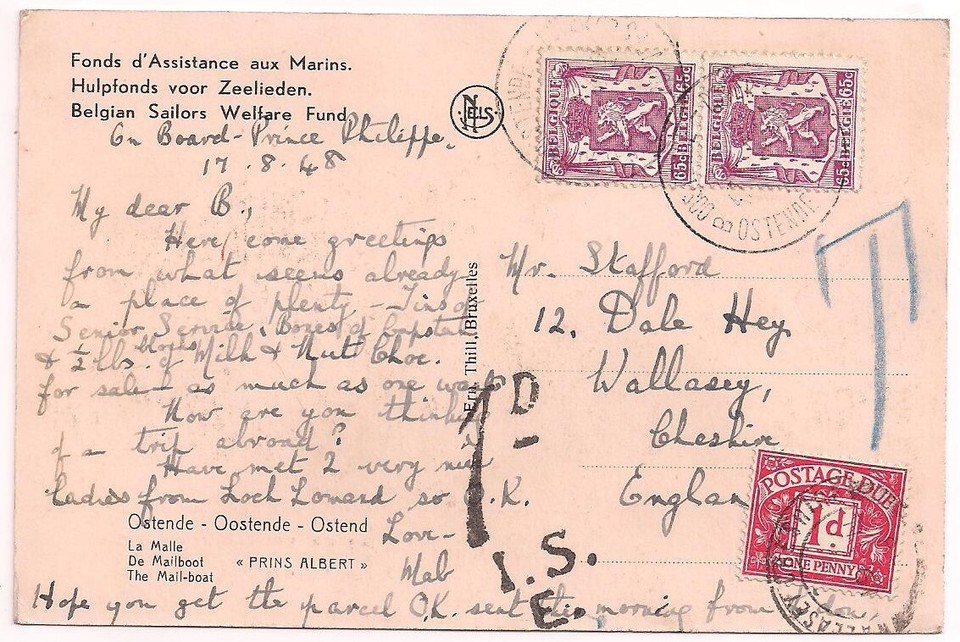 Fonds d'Assistance aux Marins.
Hulpfonds voor Zeelieden.
Belgian Sailors Welfare Fund
NELS
On Board - Prince Philippe.
17.8.48
My dear B.,
Here come greetings
from what seems already
a place of plenty - Tins of
Senior Service, Boxes of Capstan
& ½ lbs. of Milk & Nut Choc.
for sale - as much as one
How are you
of a trip abroad?
Have met 2 very
ladies from Loch Lomond so O.K.
Love -
Mab
Hope you get the parcel O.K. sent this morning from
Ostende - Oostende - Ostend
La Malle
De Mailboot « PRINS ALBERT »
The Mail-boat
Ern. Thill, Bruxelles
BELGIQUE 65c BELGIE 65c
BELGIQUE 65c BELGIE 65c
OSTENDE
T
Mr. Stafford
12. Dale Hey
Wallasey,
Cheshire
England
1D
I.S.
E.
POSTAGE DUE
1d
ONE PENNY
WALLASEY